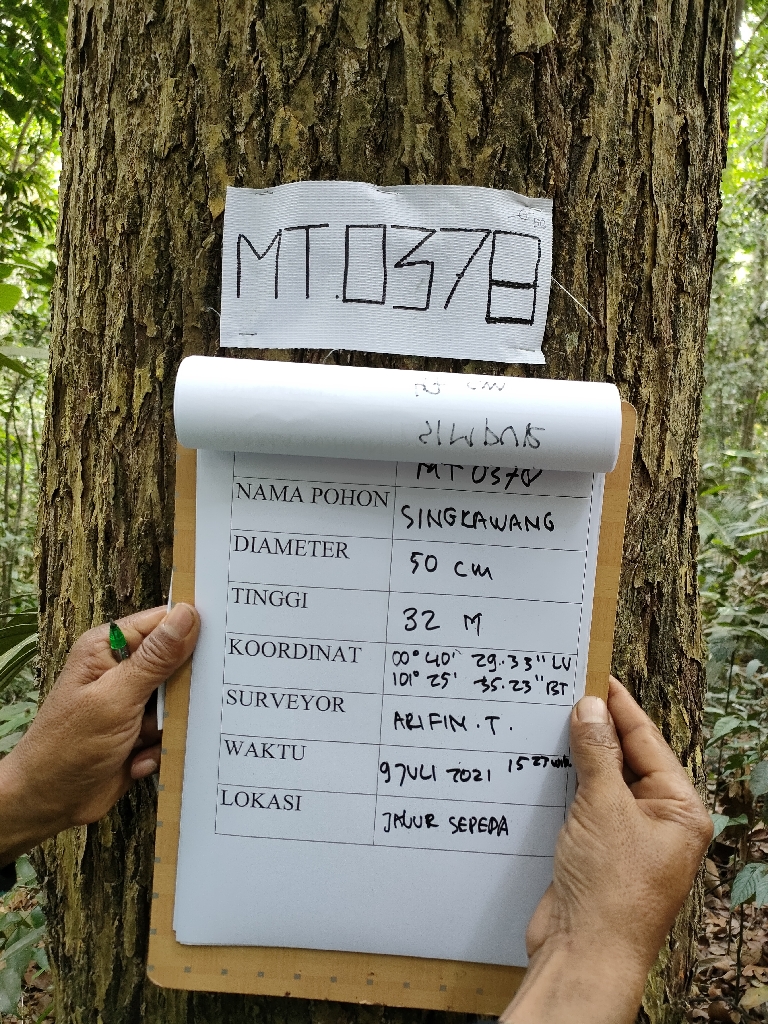 MT.0378
MT 0378
NAMA POHON SINGKAWANG
DIAMETER 50 cm
TINGGI 32 M
KOORDINAT 00° 40' 29.33" LU
101° 25' 35.23" BT
SURVEYOR ARIFIN.T.
WAKTU 9 JULI 2021 15 27
LOKASI JALUR SEPEDA